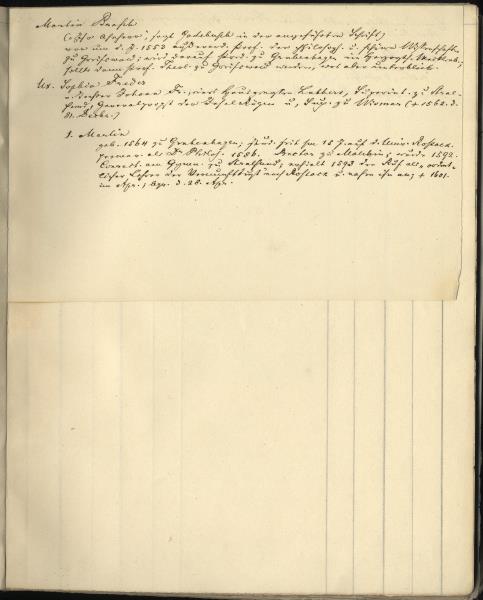 Martin Brasch
(, sagt Gadebusch in der angeführten Schrift)
war um d. J. 1553 ausserord. Prof. der Philosoph. u. schönen Wissensch.
zu Greifswald; wird darauf Präd. zu Grubenhagen im Herzogth. Mecklenb.;
sollte dann Prof. Theol. zu Greifswald werden, was aber unterblieb.
Ux. Sophia Freder
Tochter Johann Fr., eines Lutbers, Superint. zu Stral-
sund, General der Insel Rügen u. Sup. zu Wismar († 1562. d.
1. Martin
geb. 1564 zu Grubenhagen; stud. seit im 15 J. auf d. Univ. Rostock.
als Dr. Philos. 1586. Rector zu Malchin; wurde 1592.
Conrect. am Gymn. zu Stralsund; erhielt 1593 den Ruf als ordent-
licher Lehrer der Vernunftkunst nach Rostock u. nahm ihn an; † 1601.
im Apr.; bgr. d. 28. Apr.